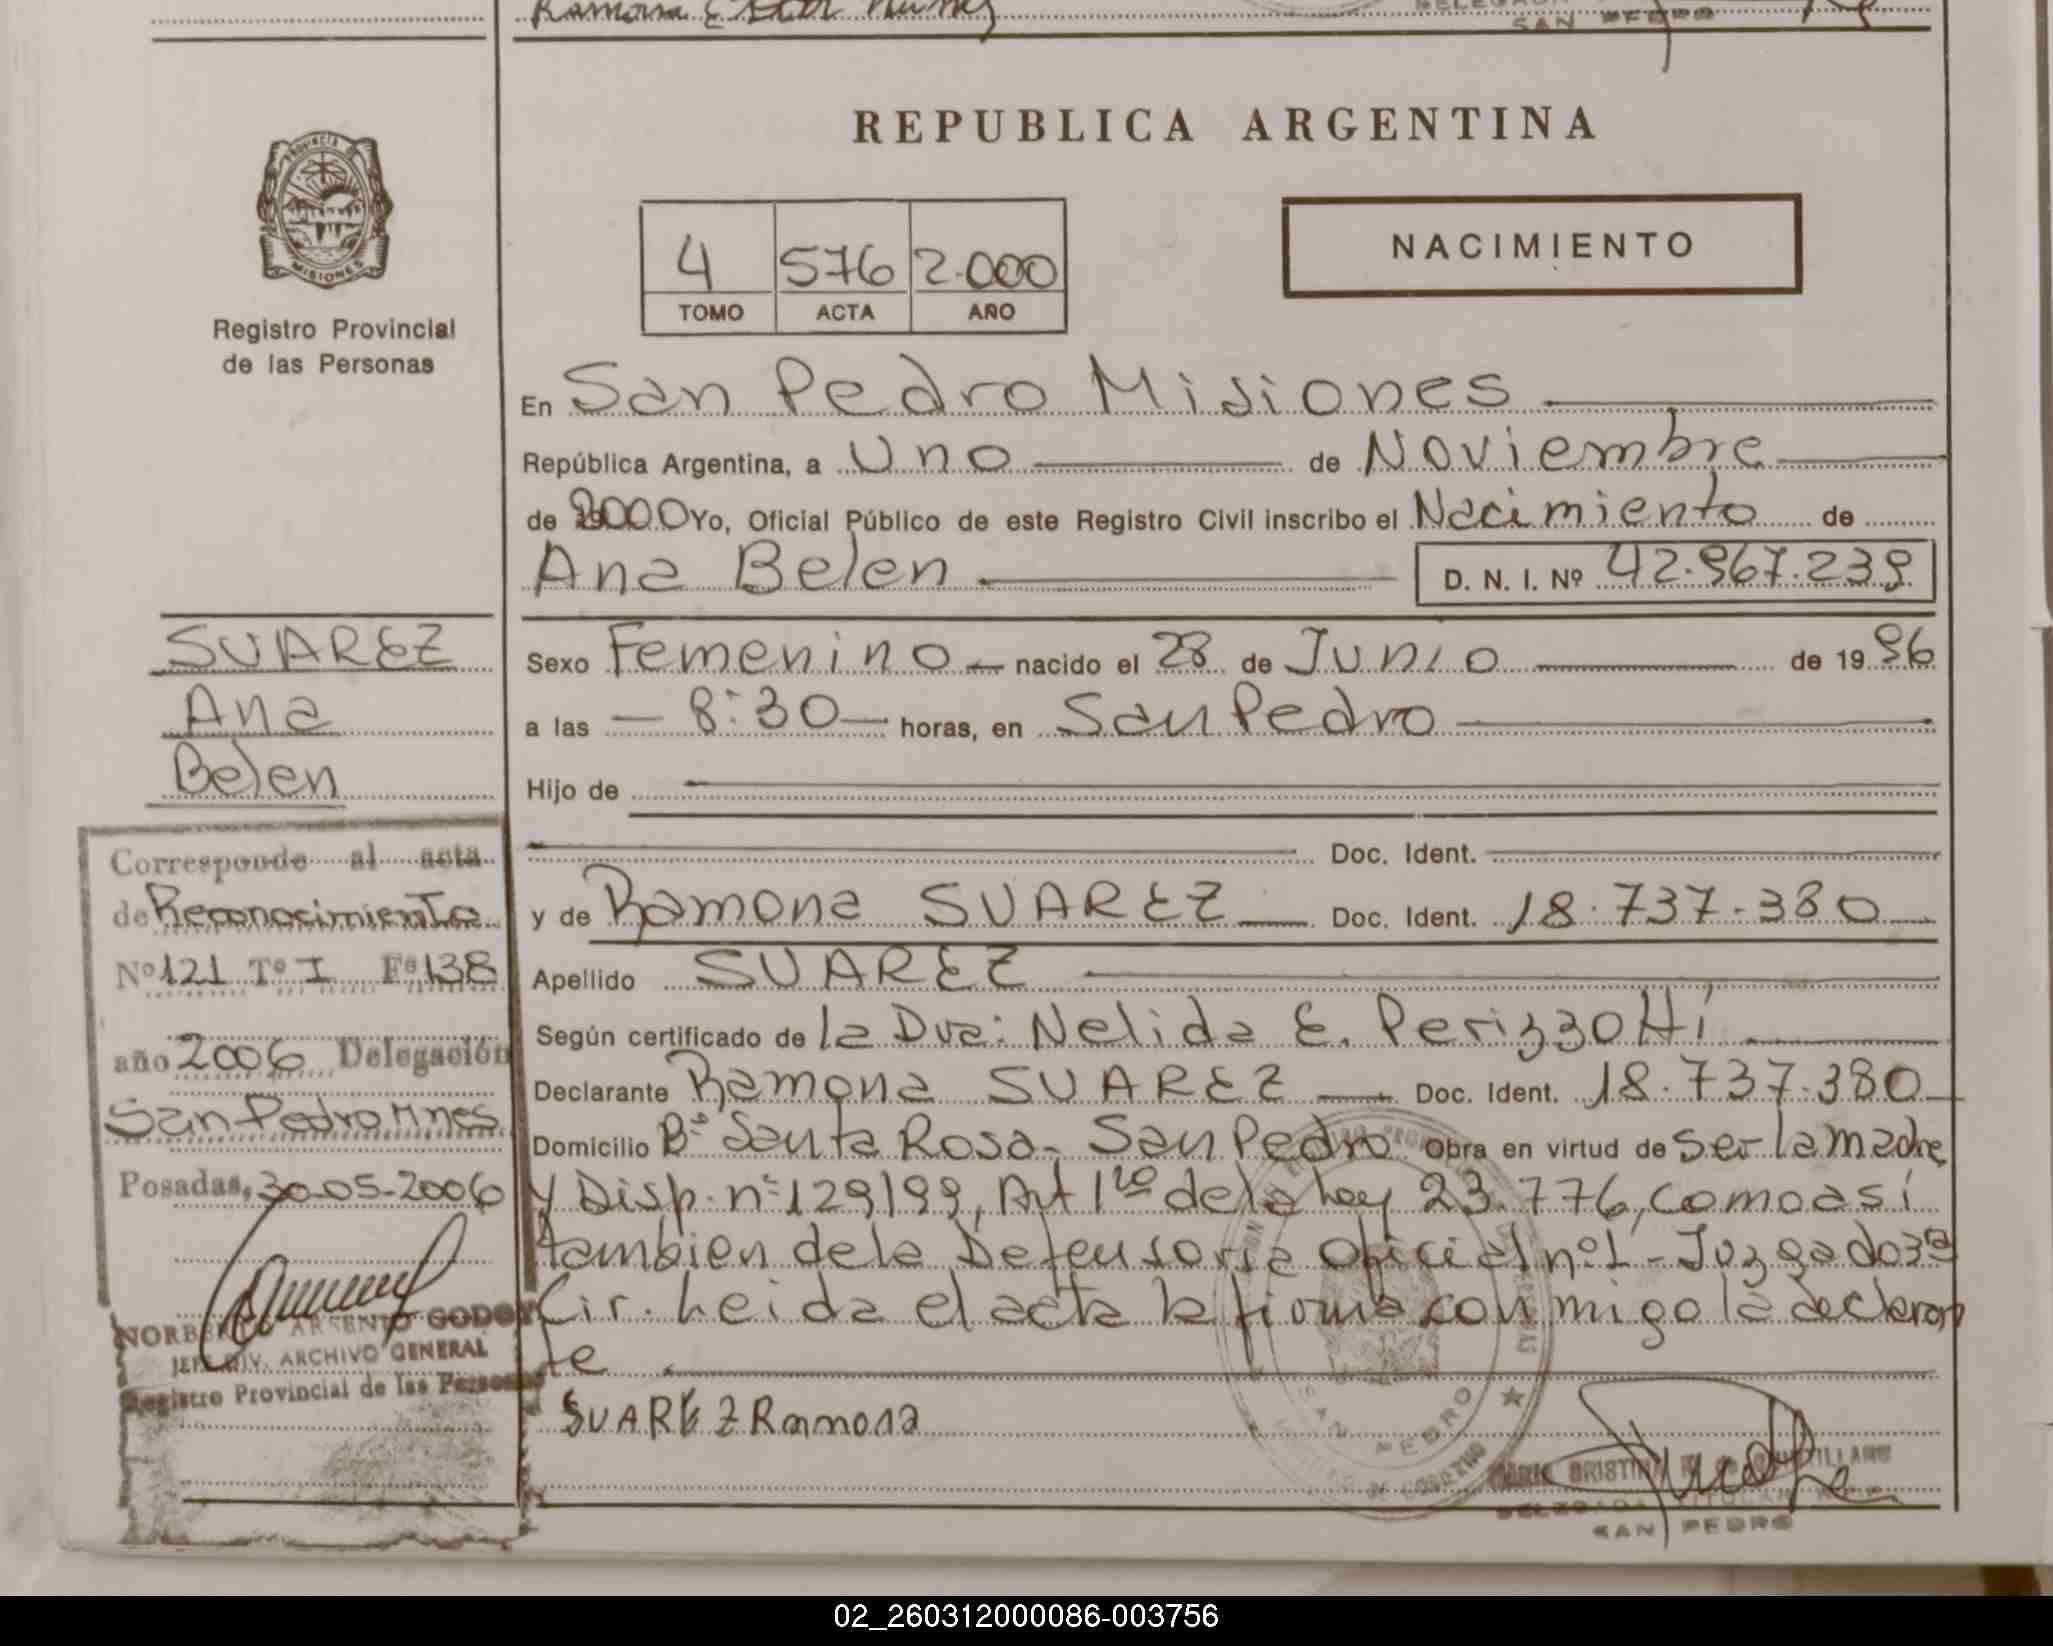 Ramona Ester Nuñez
SAN PEDRO
REPUBLICA ARGENTINA
PROVINCIA DE
MISIONES
Registro Provincial
de las Personas
4 576 2.000
TOMO ACTA AÑO
NACIMIENTO
En San Pedro Misiones
República Argentina, a Uno de Noviembre
de 2000 Yo, Oficial Público de este Registro Civil inscribo el Nacimiento de
Ana Belen D. N. I. Nº 42.967.239
SUAREZ
Ana
Belen
Sexo Femenino nacido el 28 de Junio de 19 96
a las 8:30 horas, en San Pedro
Hijo de
Doc. Ident.
y de Ramona SUAREZ Doc. Ident. 18.737.380
Apellido SUAREZ
Según certificado de la Dra: Nelida E. Perizzotti
Declarante Ramona SUAREZ Doc. Ident. 18.737.380
Domicilio Bº Santa Rosa - San Pedro Obra en virtud de ser la madre
y Disp. nº 129/99, Art 1ro de la ley 23.776, como asi
tambien de la Defensoria oficial nº1 - Juzgado 3ra
Cir. Leida el acta la firma con migo la declaran
te
SUAREZ Ramona
Corresponde al acta
de Reconocimiento
Nº 121 Tº I Fº 138
año 2006 Delegación
San Pedro Mnes
Posadas, 30-05-2006
ARSENIO GODOY
JEFE DIV. ARCHIVO GENERAL
Registro Provincial de las Personas
SAN PEDRO
DELEGADA TITULAR
SAN PEDRO
02_260312000086-003756